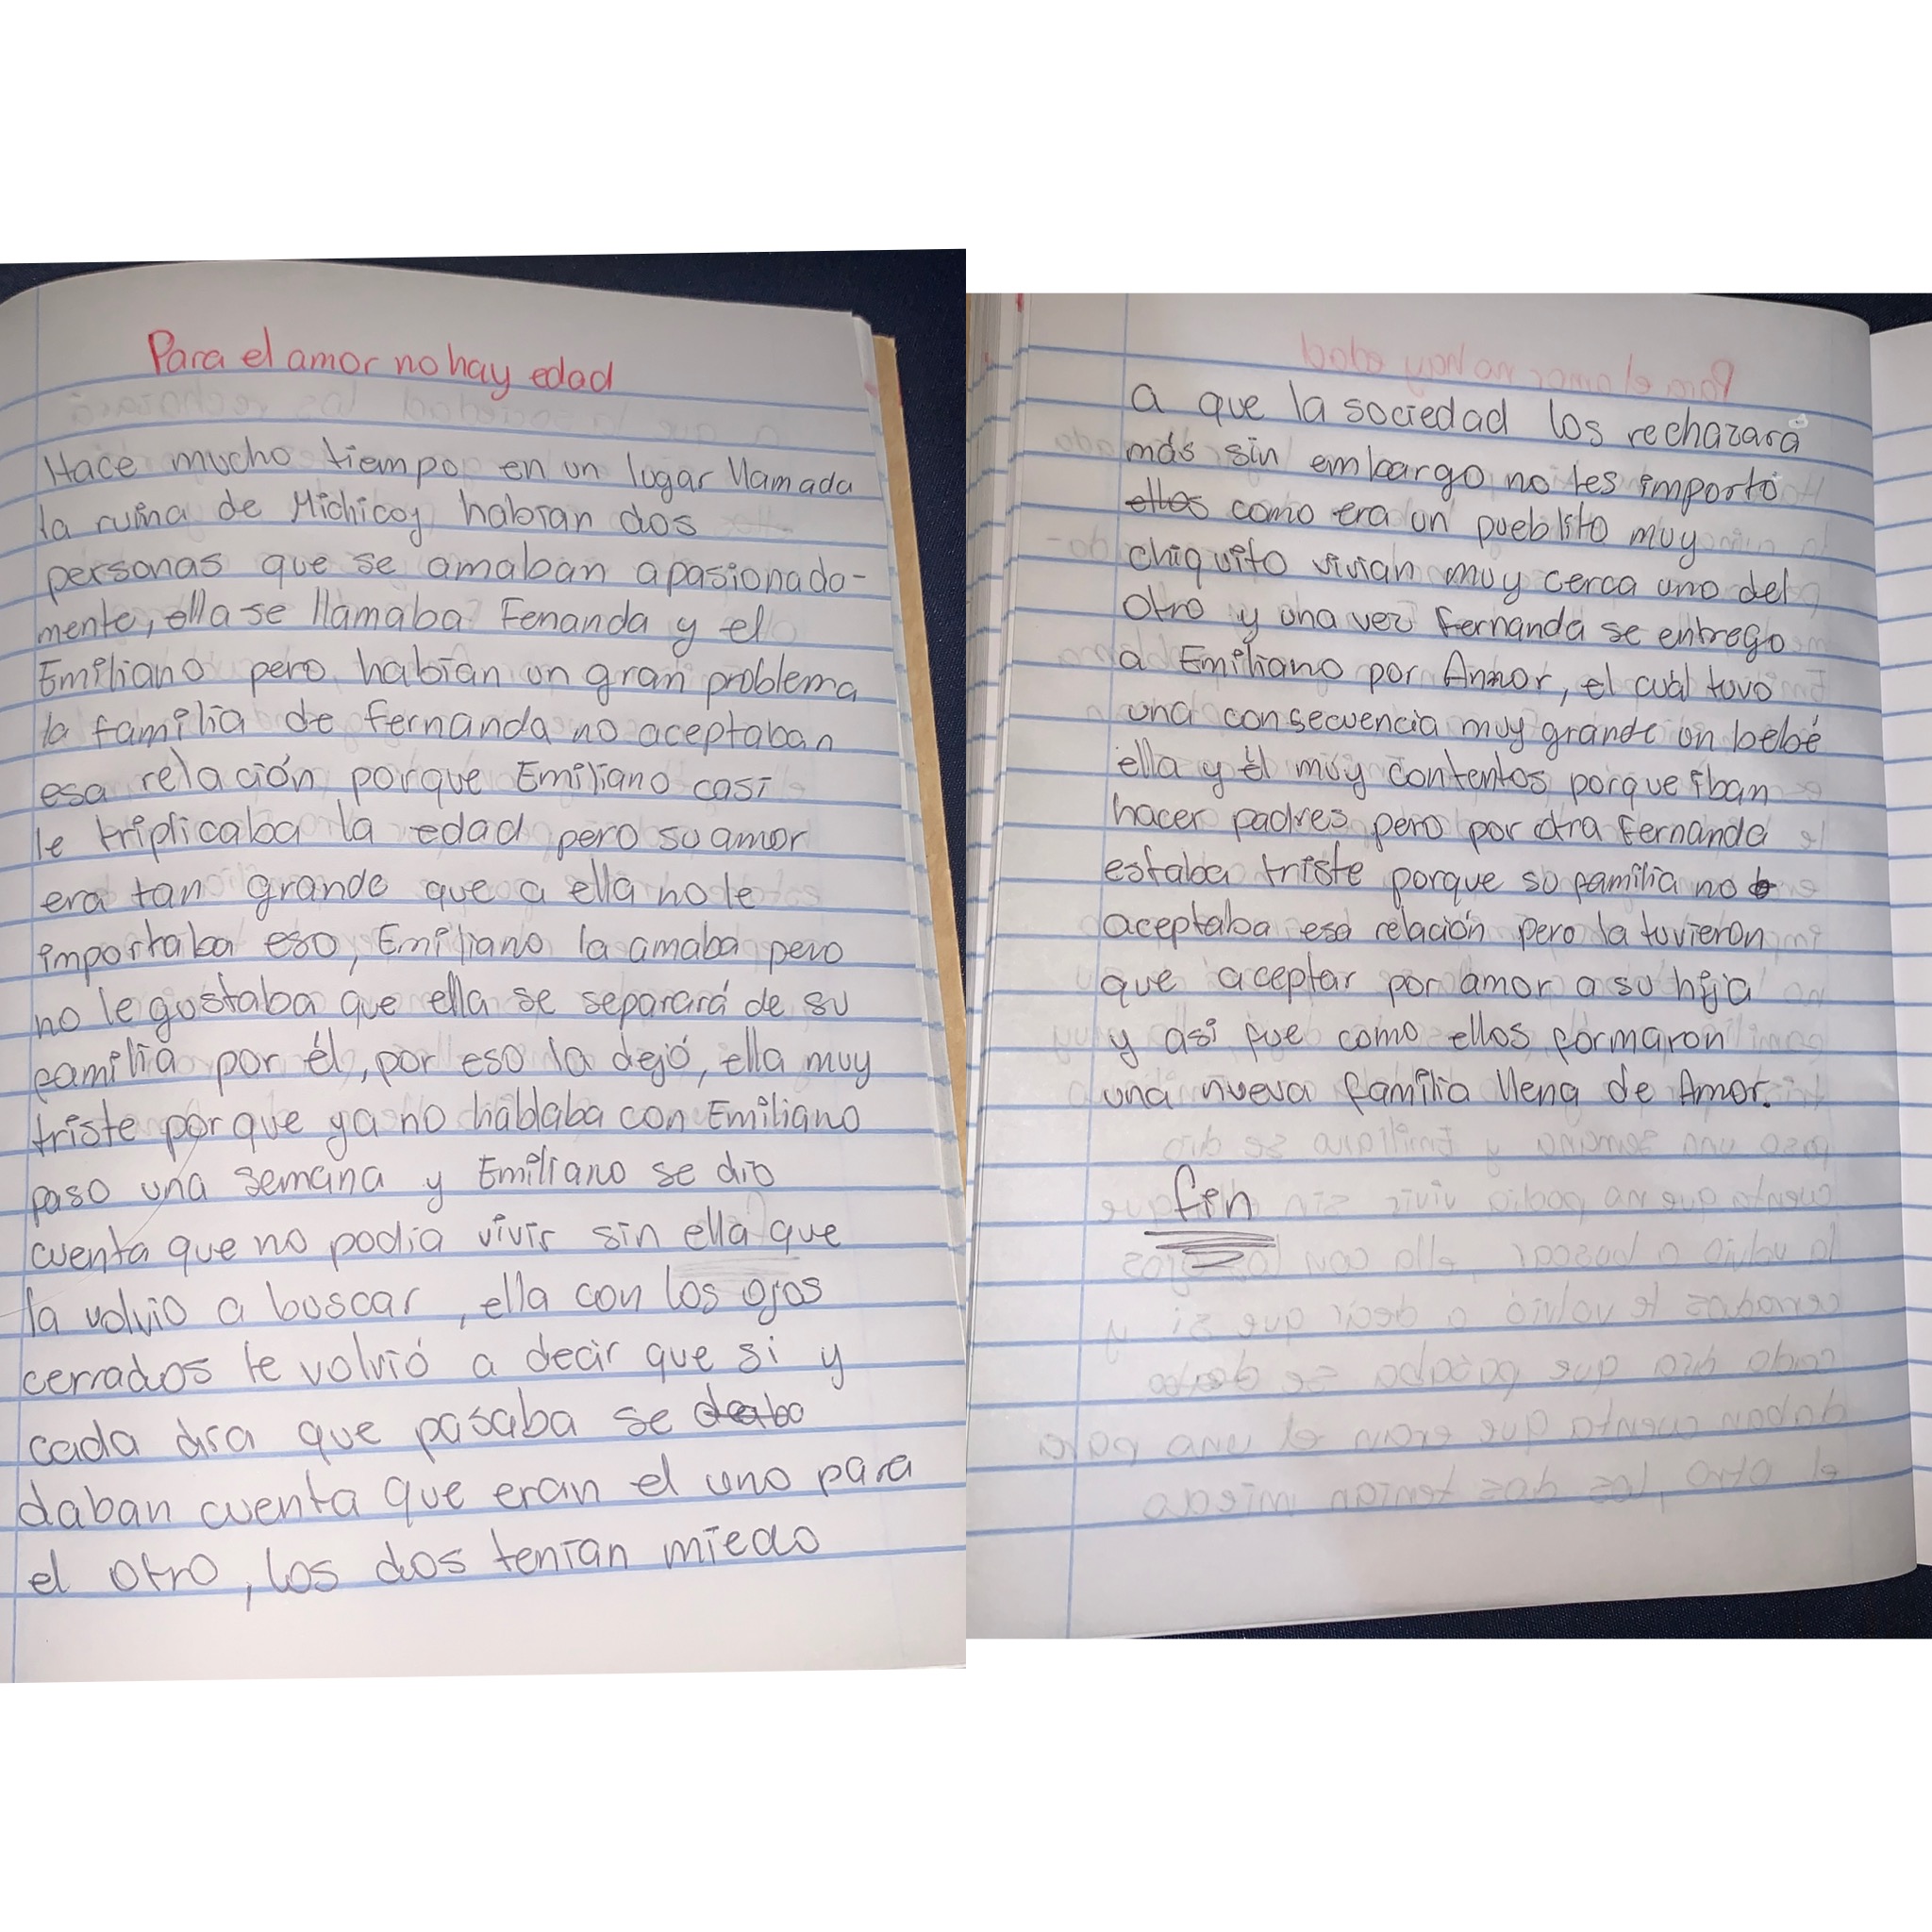 Para el amor no hay edad
Hace mucho tiempo en un lugar llamada
la ruina de Michicoy habían dos
personas que se amaban apasionada-
mente, ella se llamaba Fenanda y el
Emiliano pero habían un gran problema
la familia de Fernanda no aceptaban
esa relación porque Emiliano casi
le triplicaba la edad pero su amor
era tan grande que a ella no le
importaba eso, Emiliano la amaba pero
no le gustaba que ella se separará de su
familia por él, por eso la dejó, ella muy
triste porque ya no hablaba con Emiliano
paso una semana y Emiliano se dio
cuenta que no podia vivir sin ella que
la volvio a buscar, ella con los ojos
cerrados le volvió a decir que si y
cada día que pasaba se
daban cuenta que eran el uno para
el otro, los dos tenían miedo
a que la sociedad los rechazara
más sin embargo no les importó
ellos como era un pueblito muy
chiquito vivian muy cerca uno del
otro y una vez Fernanda se entrego
a Emiliano por Amor, el cuál tuvo
una consecuencia muy grande un bebé
ella y él muy contentos porque iban
hacer padres pero por otra Fernanda
estaba triste porque su familia no
aceptaba esa relación pero la tuvieron
que aceptar por amor a su hija
y asi fue como ellos formaron
una nueva familia llena de Amor.
fin